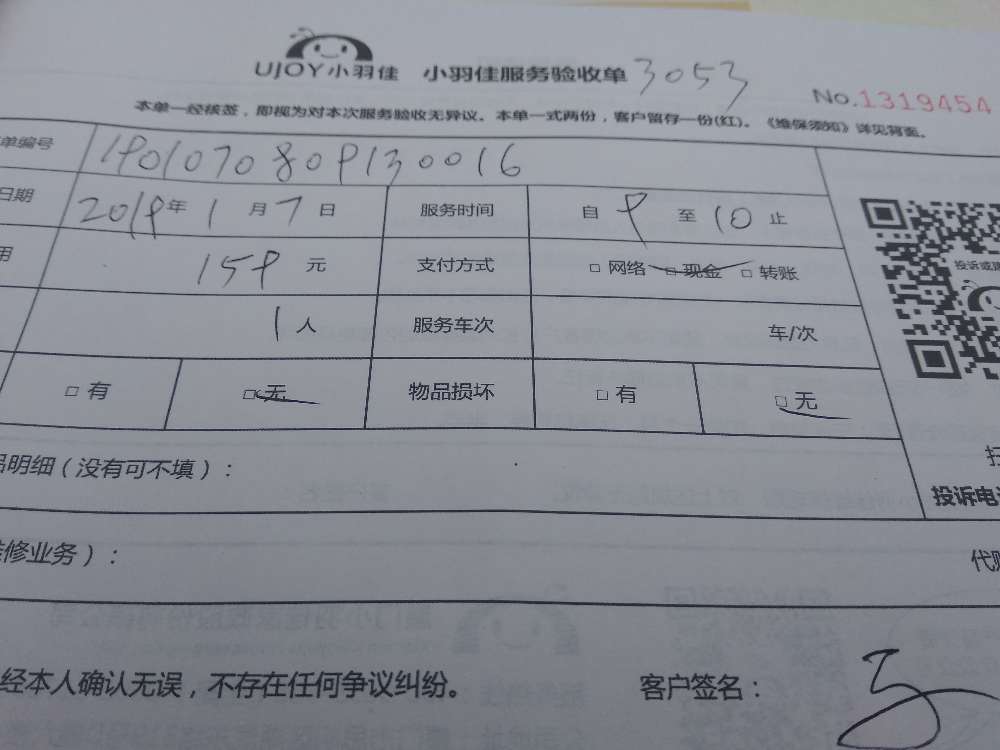 UJOY小羽佳 小羽佳服务验收单 3053
No.1319454
本单一经核签，即视为对本次服务验收无异议。本单一式两份，客户留存一份(红)。《维保须知》详见背面。
单编号 1901070809130016
日期 2019年1月7日 服务时间 自9至10止
用 159元 支付方式 □网络 □现金 □转账
1人 服务车次 车/次
□有 □无 物品损坏 □有 □无
投诉或
品明细（没有可不填）：
扫
投诉电
修业务）：
代
经本人确认无误，不存在任何争议纠纷。 客户签名：